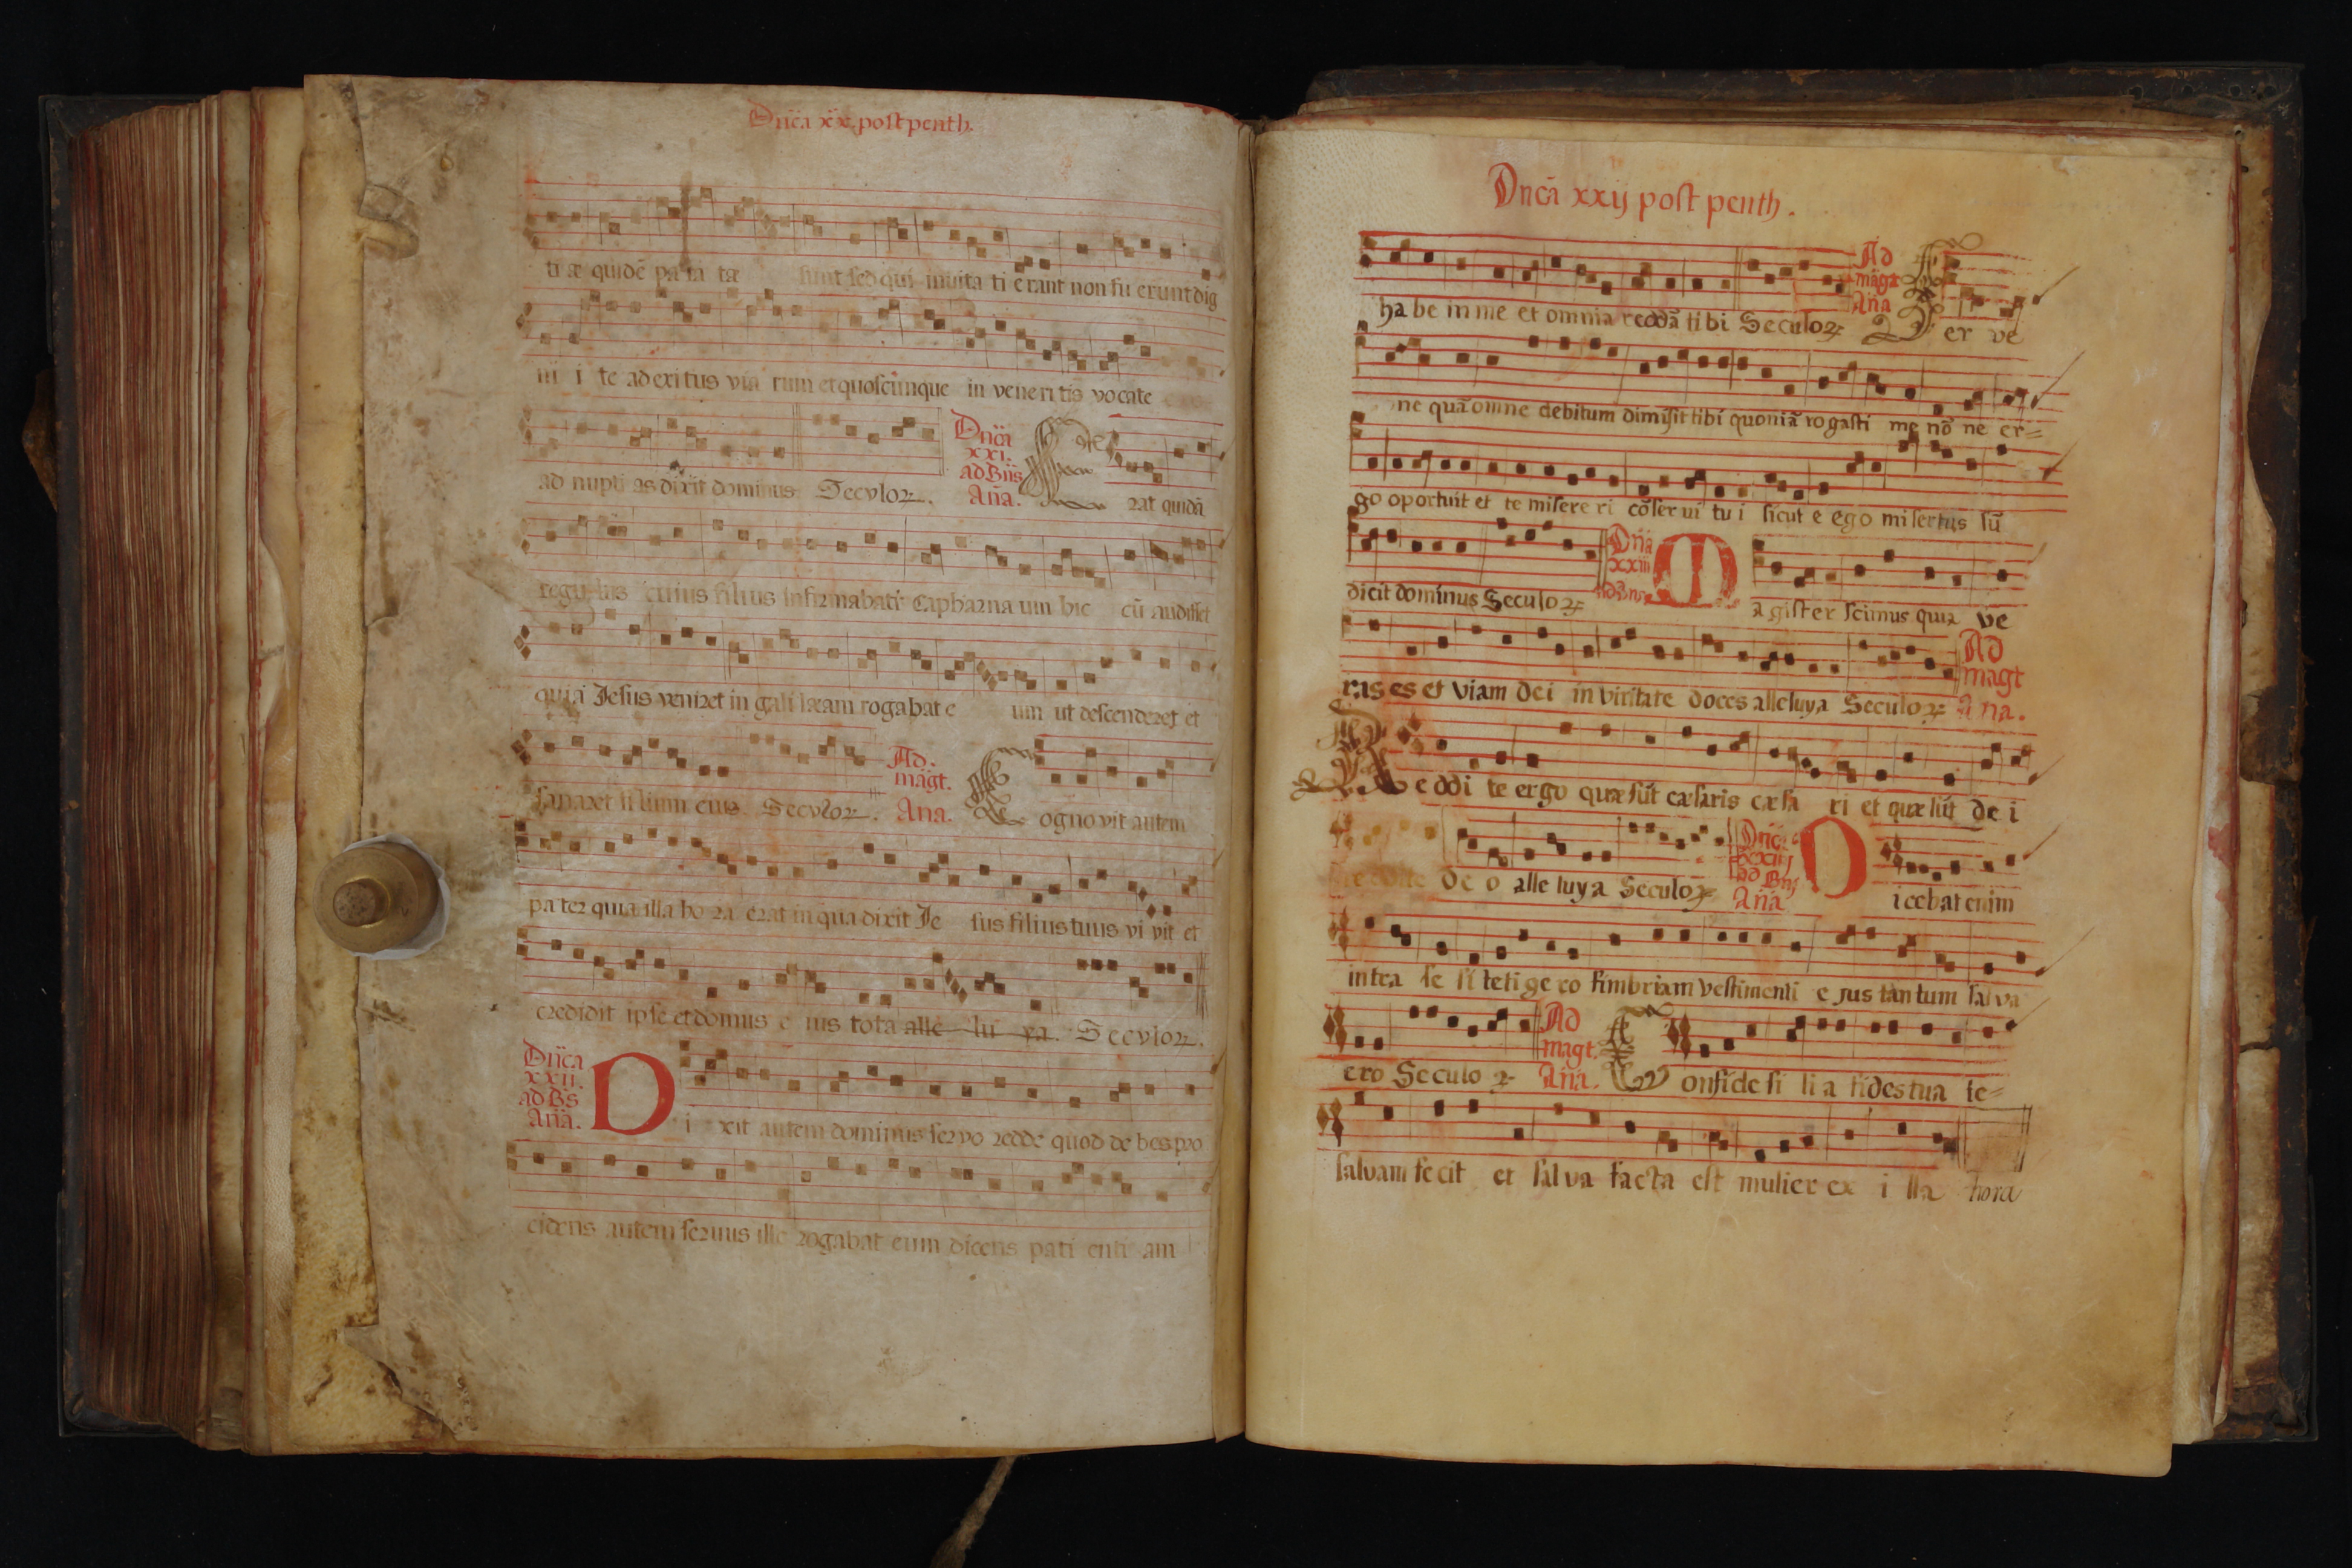 Dn̄ca xx post penth.
ti æ quidē pa ra tæ sunt sed qui invita ti e rant non fu erunt dig
ni i te ad exitus via rum et quoscunque in veneri tis vocate
ad nupti as dixit dominus Secvloꝝ.
Dn̄ca
xxi.
ad Bn̄s
An̄a.
Erat quidā
regulus cuius filius infirmabatᷣ Capharna um hic cū audisset
quia Jesus veniret in gali læam rogabat e um ut descenderet et
sanaret filium eius Secvloꝝ.
Ad.
magt.
Ana.
Cognovit autem
pater quia illa ho ra erat in qua dixit Je sus filius tuus vi vit et
credidit ipse et domus e ius tota alle lu ya. Secvloꝝ.
Dn̄ca
xxii.
ad Bs̄
An̄a.
Di xit autem dominus servo redde quod de bes pro
cidens autem servus ille rogabat eum dicens pati enti am
Dn̄cā xxij post penth.
ha be in me et omnia reddā tibi Seculoꝝ
Ad
magt
Ana
Ser ve
ne quā omne debitum dimisit tibi quoniā rogasti me nō ne er=
go oportuit et te misere ri cōser vi tu i sicut e ego misertus sū
dicit dominus Seculoꝝ
Dn̄a
xxiii
ad Bn̄s
Magister scimus quia ve
ras es et viam dei in viritate doces alleluya Seculoꝝ
Ad
magt
Ana.
Reddi te ergo quæ sūt cæsaris cæsa ri et quæ sūt de i
de o alle luya Seculoꝝ
Dn̄ca
xxiiij
ad Bn̄s
An̄a
Dicebat enim
intra se si tetige ro fimbriam vestimenti e jus tantum salva
ero Seculoꝝ
Ad
magt.
An̄a.
Confide fi li a fides tua te=
salvam fecit et salva facta est mulier ex i lla hora